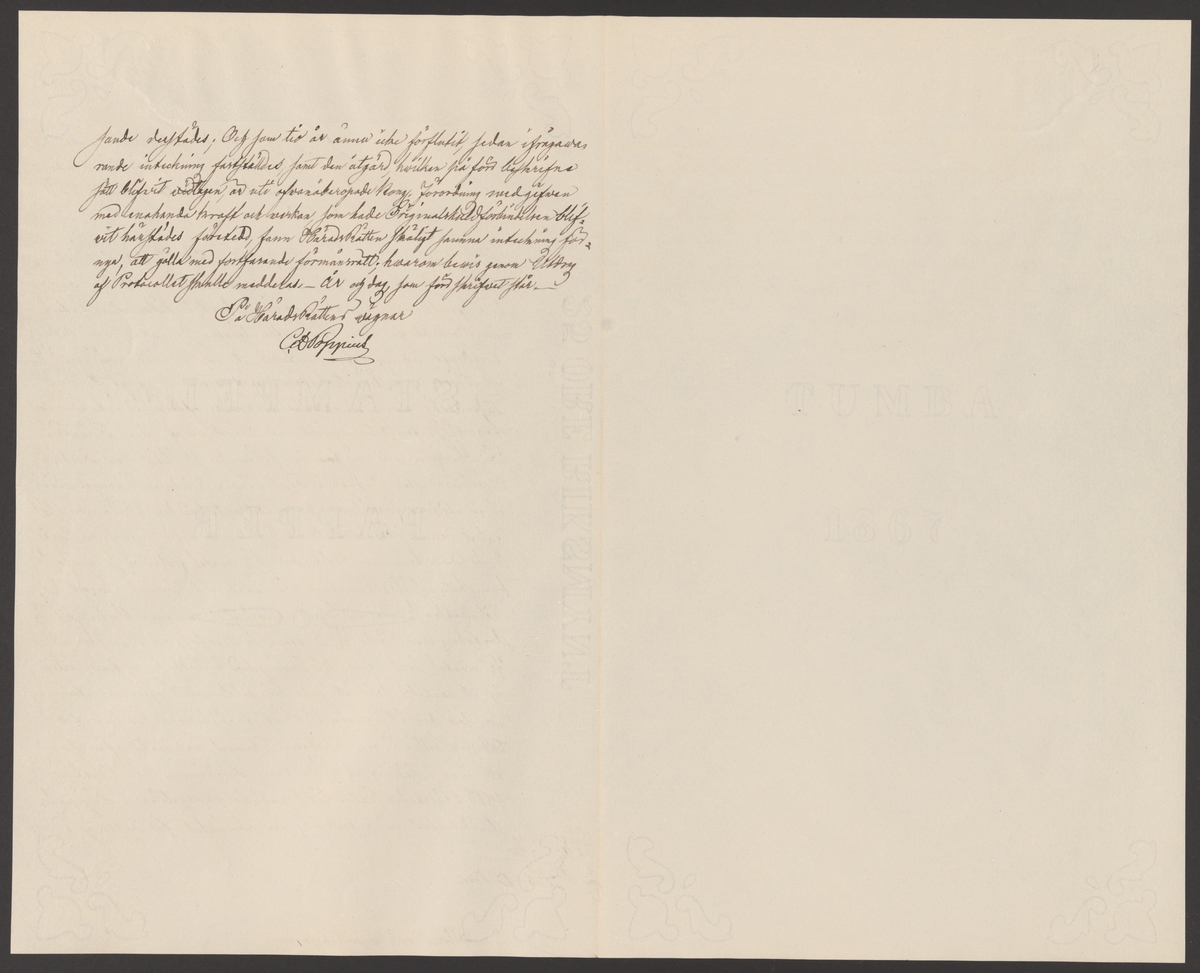 sande derstädes; Och som tio år ännu icke förflutit, sedan ifrågawa-
rande inteckning fastställdes samt den åtgärd, hvilken på förr beskrifne
sätt blifvit vidtagen, är uti ofvanåberopade Kong. Förordning medgifven
med enahanda kraft och verkan som hade Originalskuldförbindelsen blif-
vit härstädes företedd, fann HäradsRätten skäligt samma inteckning för-
nya, att gälla med fortfarande förmånsrätt; hvarom bewis genom Utdrag
af Protocollet skulle meddelas. — År och dag, som förr skrifvet står. —
På HäradsRättens vägnar
C.D. Poppius
STAMPEL
PAPPER
35 ÖRE RIKSMYNT
TUMBA
1867